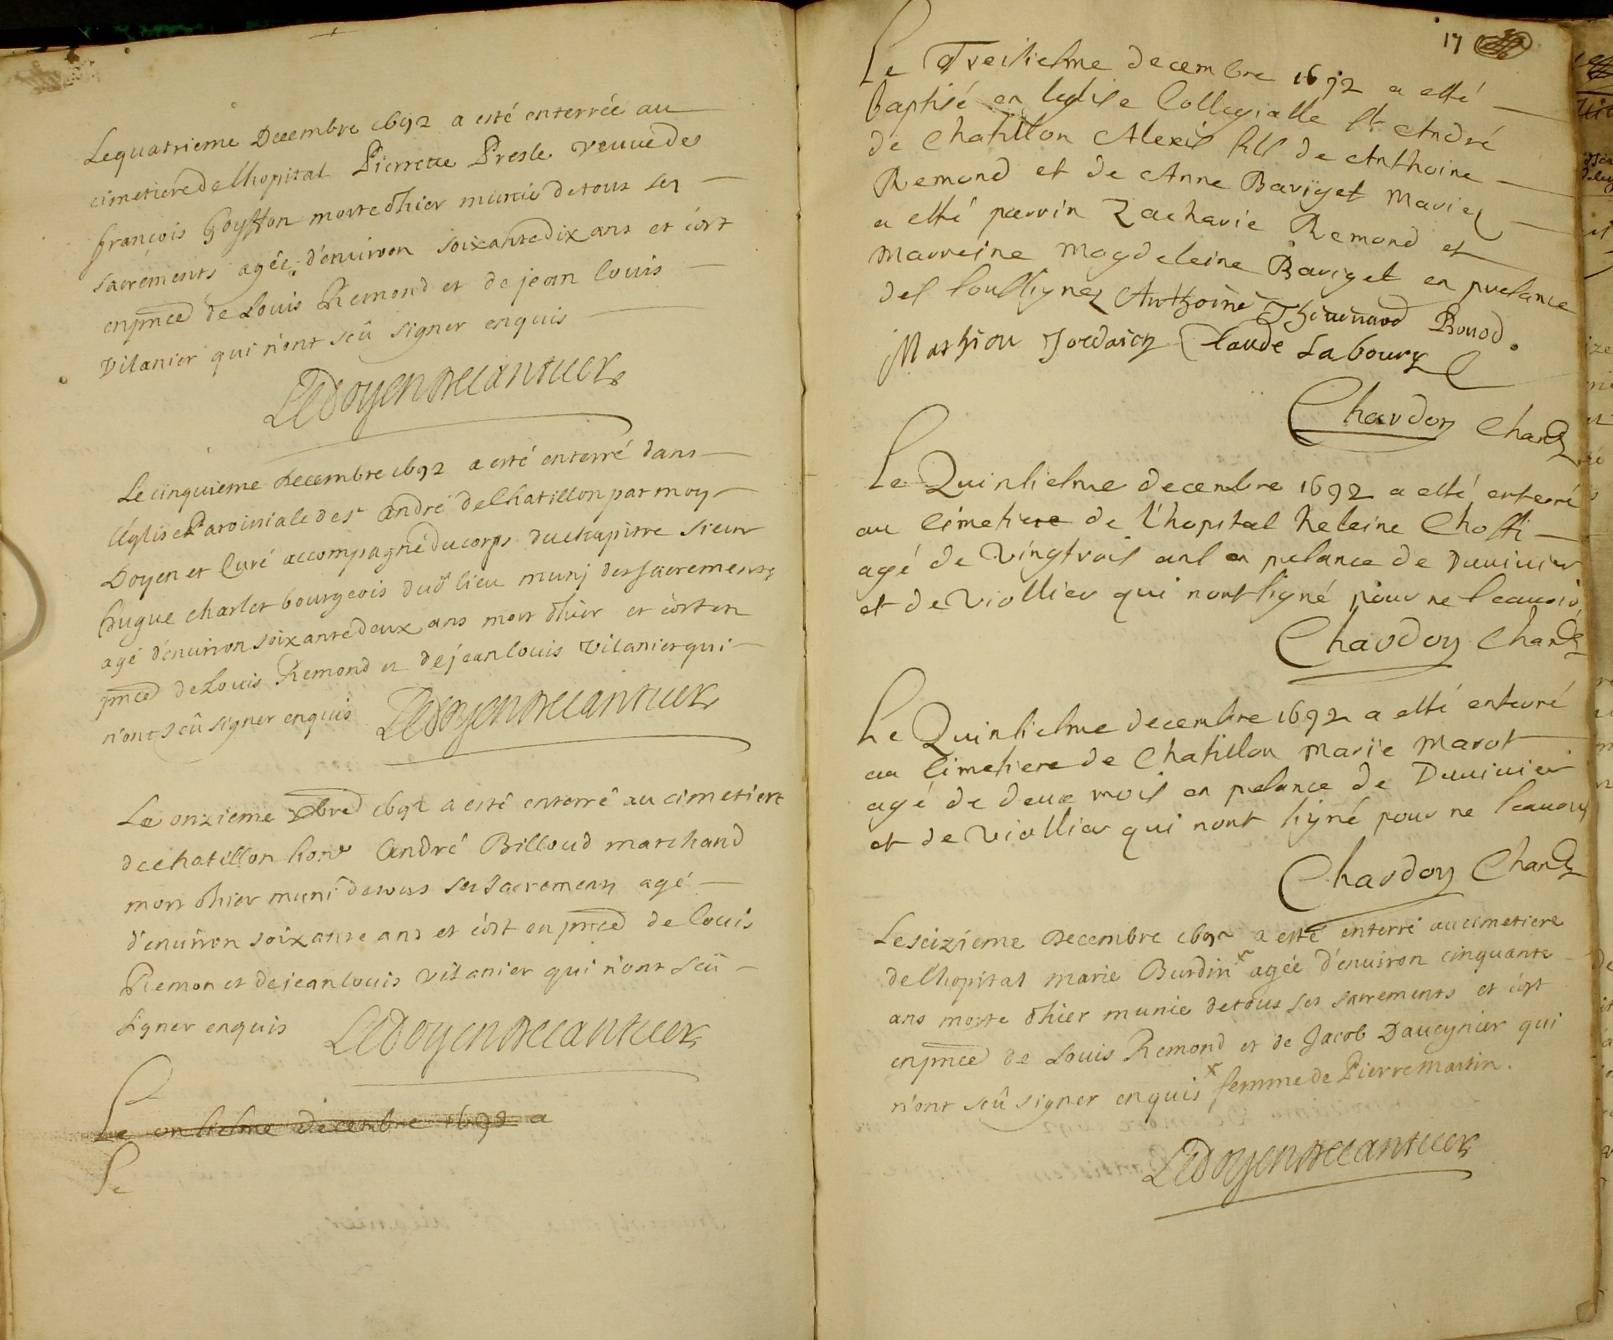 Le quatrieme Decembre 1692 a esté enterrée au
cimetiere de lhopital Pierrette Presle veuve de
françois Goyffon morte dhier munie de tous ses
sacrements agée d'environ soixante dix ans et c'est
en pnce de Louis Remond et de jean louis
vilanier qui n'ont sçû signer enquis
Le doyen
Le cinquieme decembre 1692 a esté enterré dans
l'église Paroissiale de st André de Chatillon par moy
Doyen et Curé accompagné du corps du chapitre sieur
hugue charlet bourgeois dud lieu muni des sacrements
agé d'environ soixante deux ans mort dhier et c'est en
pnce de Louis Remond et de jean louis vilanier qui
n'ont sçû signer enquis Le doyen
Le onzieme xbre 1692 a esté enterré au cimetiere
de chatillon honr André Billoud marchand
mort dhier muni de tous ses sacrements agé
d'environ soixante ans et c'est en pnce de louis
Remon et de jean louis vilanier qui n'ont sçû
signer enquis Le doyen
Le onsiesme decembre 1692 a
Le
17
Le Treisiesme decembre 1692 a esté
baptisé en leglise Collegialle St André
de Chatillon Alexis fils de Anthoine
Remond et de Anne Bavyget mariez
a esté parrin Zacharie Remond et
marreine Magdeleine Baviget en presance
des soussignez Anthoine Thiminard Bonod.
Mathiou Claude Laboury
Chardon Chan
Le Quinsiesme decenbre 1692 a esté enterré
au Cimetiere de l'hopital heleine Choffi
agé de vingtrois ans en presance de Duvivier
et de Viollier qui nont signé pour ne scauoir
Chardon Chan
Le Quinsiesme decembre 1692 a esté enterré
au Cimetiere de Chatillon Marie Marot
agé de deux mois en presance de Duvivier
et de Viollier qui nont signé pour ne scauoir
Chardon Chan
Le seizieme decembre 1692 a esté enterré au cimetiere
de lhopital marie Burdin x agée d'environ cinquante
ans morte dhier munie de tous ses sacrements et c'est
en pnce de Louis Remond et de Jacob Daveynier qui
n'ont sçû signer enquis x femme de Pierre Martin.
Le doyen